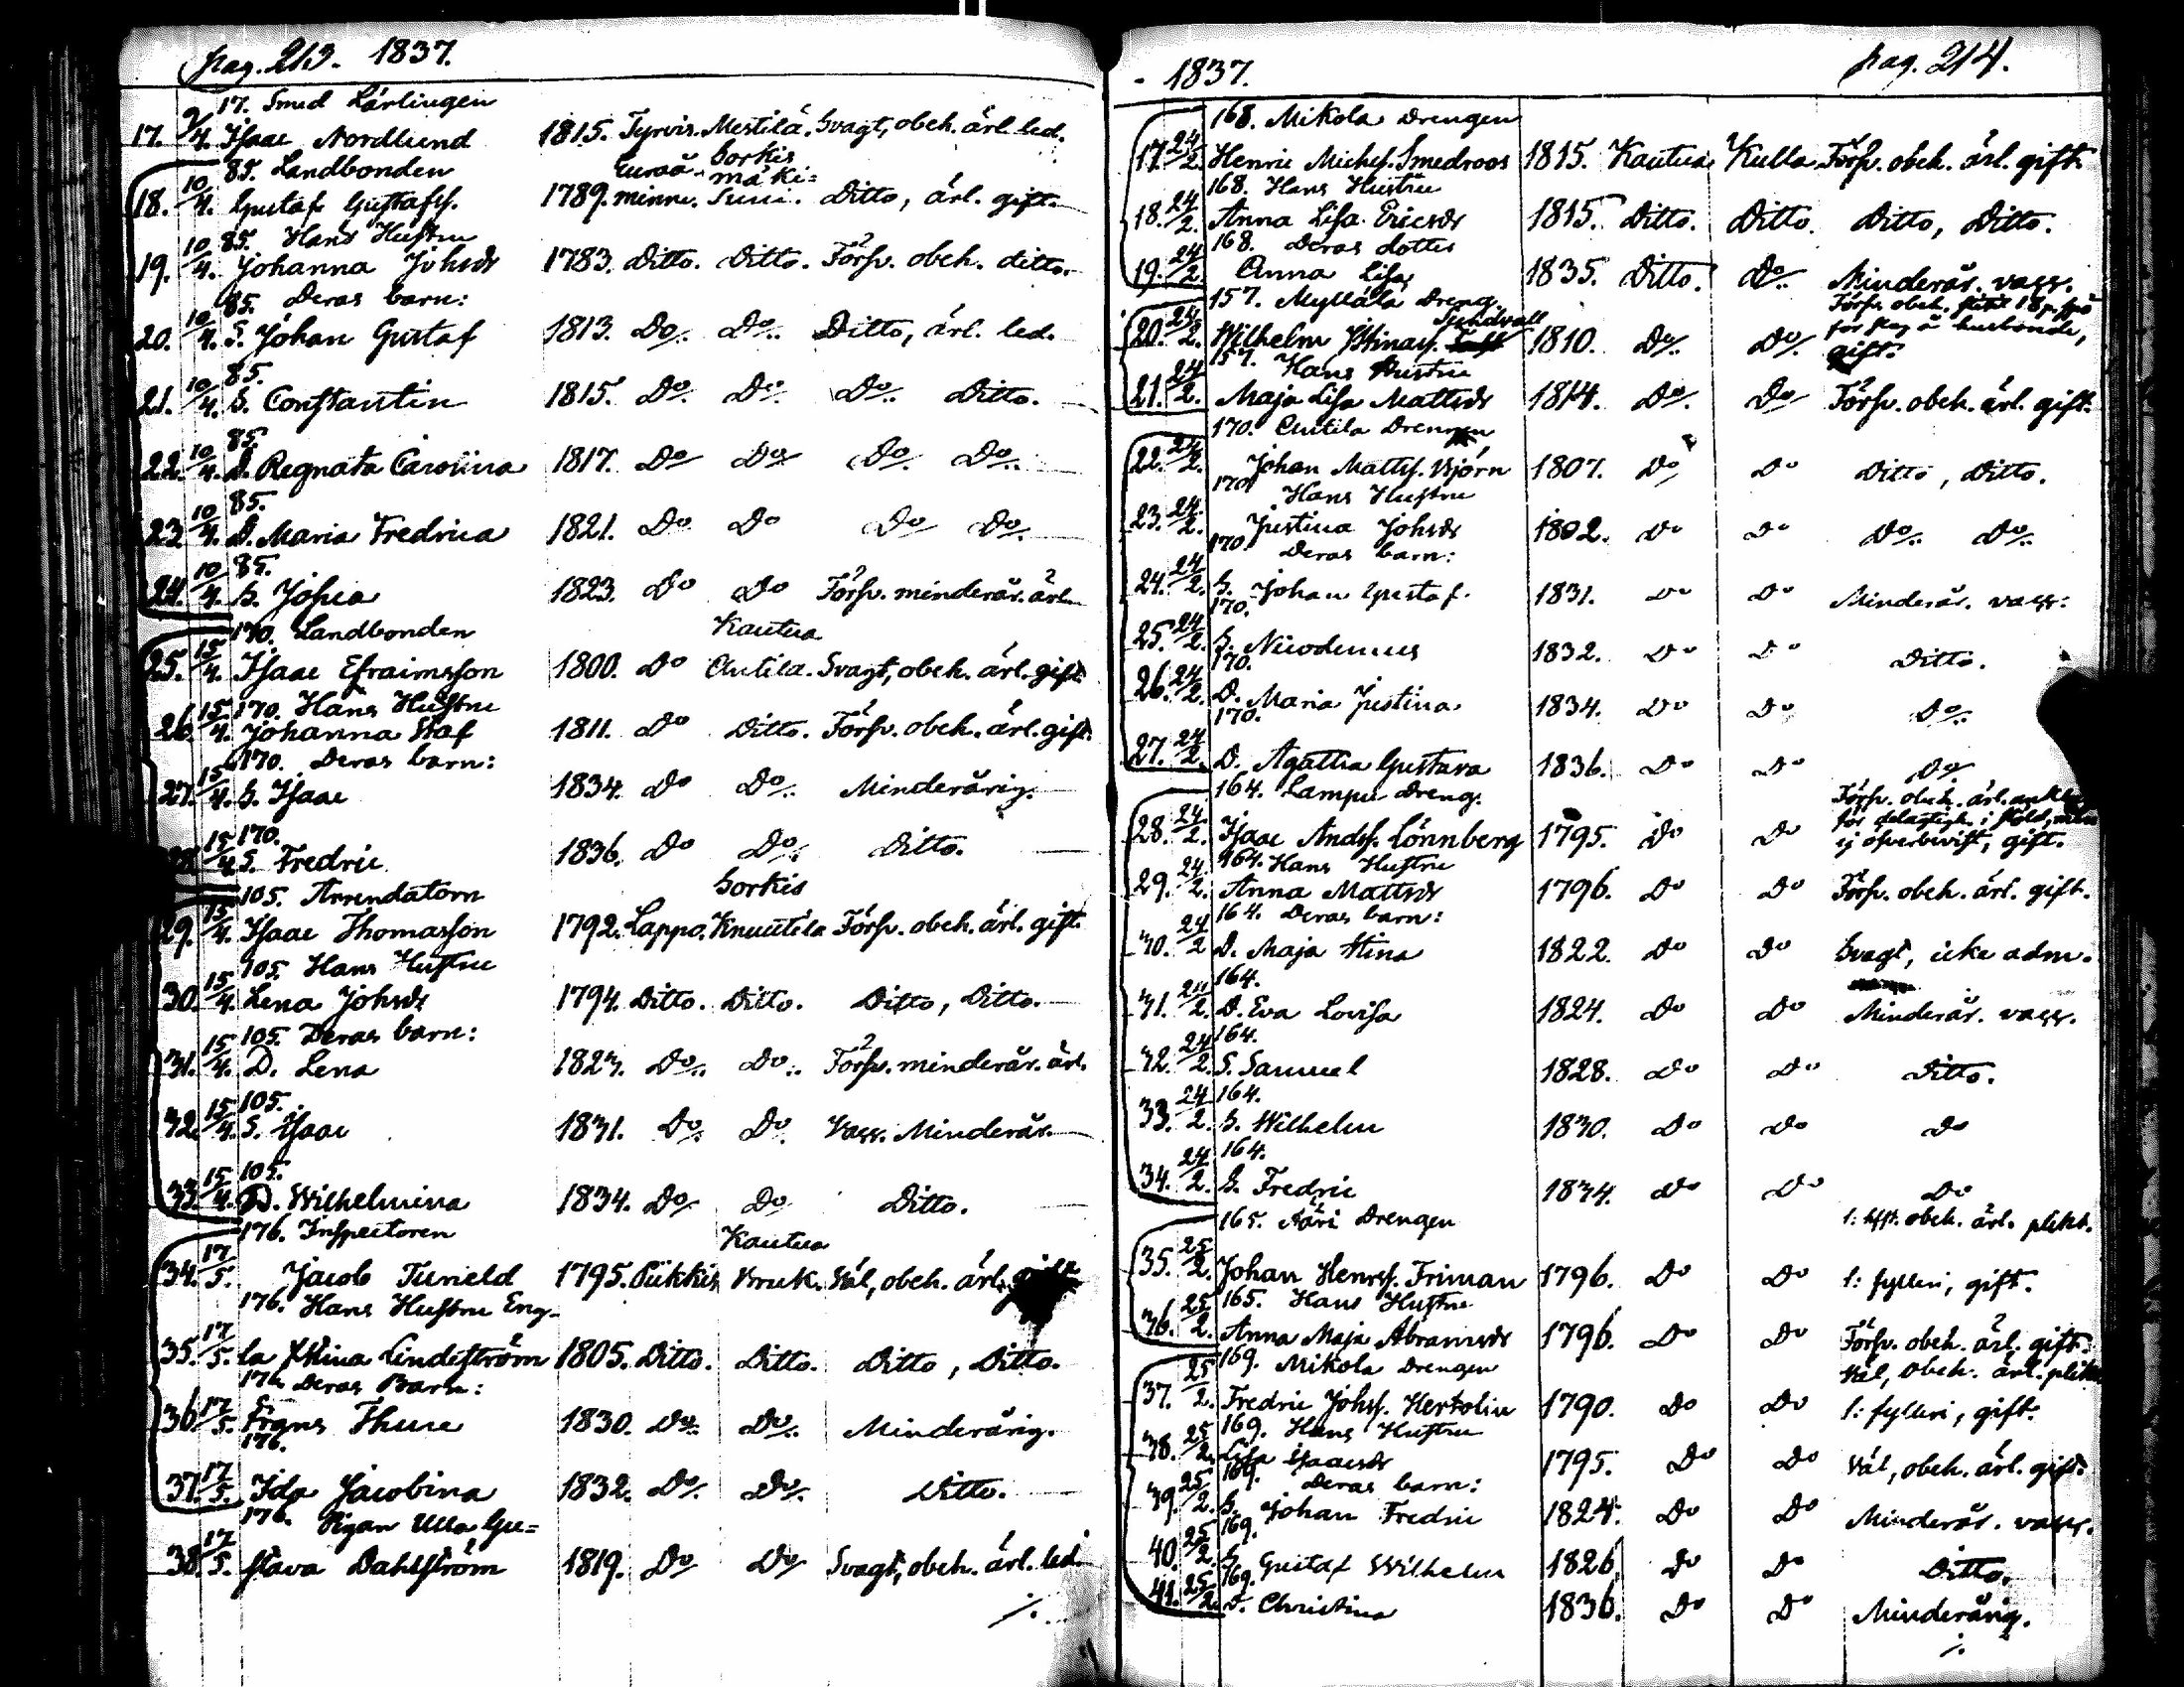 pag. 213. 1837.
17. Smed Lärlingen
17. 9/4. Isaac Nordlund 1815. Tyrvis. Mestilä. Svagt, obeh. ärl. led.
85. Landbonden Euraå- Sorkis
mäki=
18. 10/4. Gustaf Gustafss. 1789. minne. Suni. Ditto, ärl. gift.
85. Hans Hustru
19. 10/4. Johanna Johsdr 1783. Ditto. Ditto. Försv. obeh. ditto.
85. Deras barn:
20. 10/4. S. Johan Gustaf 1813. Do/. Do/. Ditto, ärl. led.
85.
21. 10/4. S. Constantin 1815. Do/. Do/. Do/. Ditto.
85.
22. 10/4. D. Regnata Carolina 1817. Do/ Do/ Do/. Do/.
85.
23. 10/4. D. Maria Fredrica 1821. Do Do Do/ Do/.
85.
24. 10/4. S. Josua 1823. Do Do Försv. minderår. ärl.
170. Landbonden Kautua
25. 15/4. Isaac Efraimsson 1800. Do Antila. Svagt, obeh. ärl. gift.
170. Hans Hustru
26. 15/4. Johanna Staf 1811. Do Ditto. Försv. obeh. ärl. gift.
170. Deras barn:
27. 15/4. S. Isaac 1834. Do Do/. Minderårig.
170.
28. 15/4. S. Fredric 1836. Do Do/. Ditto.
105. Arrendatorn Sorkis
29. 15/4. Isaac Thomasson 1792. Lappo. Knuutila Försv. obeh. ärl. gift.
105. Hans Hustru
30. 15/4. Lena Johsdr 1794. Ditto. Ditto. Ditto, Ditto.
105. Deras barn:
31. 15/4. D. Lena 1823. Do/. Do/. Försv. minderår. ärl.
105.
32. 15/4. S. Isaac 1831. Do/. Do. Vacc. Minderår.
105.
33. 15/4. D. Wilhelmina 1834. Do/ Do Ditto.
176. Inspectoren Kautua
34. 17/5. Jacob Tuneld 1795. Pikkis Bruk. Väl, obeh. ärl. gift.
176. Hans Hustru Eng-
35. 17/5. la Stina Lindeström 1805. Ditto. Ditto. Ditto, Ditto.
176. Deras Barn:
36. 17/5. S. Frans Thure 1830. Do/. Do/. Minderårig.
176.
37. 17/5. Ida Jacobina 1832. Do/. Do/. Ditto.
176. Pigan Ulla Gu=
38. 17/5. stava Dahlström 1819. Do/ Do/ Svagt, obeh. ärl. led.
./.
- 1837. pag. 214.
168. Mikola Drengen
17. 24/2. Henric Michels. Smedroos 1815. Kautua Kulla Försv. obeh. ärl. gift.
168. Hans Hustru
18. 24/2. Anna Lisa Ericsdr 1815. Ditto. Ditto. Ditto, Ditto.
168. Deras dotter
19. 24/2. Anna Lisa 1835. Ditto. Do/. Minderår. vacc.
157. Myllälä Dreng. Försv. obeh.
Sundvall för slag å husbonde,
20. 24/2. Wilhelm Stinass. 1810. Do/. Do/. gift.
157. Hans Hustru
21. 24/2. Maja Lisa Mattsdr 1814. Do/. Do/ Försv. obeh. ärl. gift.
170. Antila Drengen
22. 24/2. Johan Mattss. Björn 1807. Do/ Do Ditto, Ditto.
170. Hans Hustru
23. 24/2. Justina Johsdr 1802. Do Do Do/. Do/.
170. Deras barn:
24. 24/2. S. Johan Gustaf. 1831. Do Do Minderår. vacc.
170.
25. 24/2. S. Nicodemus 1832. Do Do Ditto.
170.
26. 24/2. D. Maria Justina 1834. Do Do Do/.
170.
27. 24/2. D. Agatha Gustava 1836. Do Do Do/
164. Lampu Dreng. Försv. obeh. ärl.
för delaktigh. i stöld, men
28. 24/2. Isaac Andss. Lönnberg 1795. Do Do ej öfverbevist, gift.
164. Hans Hustru
29. 24/2. Anna Mattsdr 1796. Do Do Försv. obeh. ärl. gift.
164. Deras barn:
30. 24/2 D. Maja Stina 1822. Do Do Svagt, icke adm.
164.
31. 24/2. D. Eva Lovisa 1824. Do Do Minderår. vacc.
164.
32. 24/2. S. Samuel 1828. Do Do Ditto.
164.
33. 24/2. S. Wilhelm 1830. Do Do Do
164.
34. 24/2. S. Fredric 1834. Do Do Do
165. Drengen obeh. ärl. plikt.
35. 25/2. Johan Henrss. Friman 1796. Do Do 1: fylleri, gift.
165. Hans Hustru
36. 25/2. Anna Maja Abramsdr 1796. Do Do Försv. obeh. ärl. gift.
169. Mikola Drengen Väl, obeh. ärl. plikt.
37. 25/2. Fredric Johss. Hertolin 1790. Do Do 1: fylleri, gift.
169. Hans Hustru
38. 25/2. Lisa Isaacsdr 1795. Do Do Väl, obeh. ärl. gift.
169. Deras barn:
39. 25/2. S. Johan Fredric 1824. Do Do Minderår. vacc.
169.
40. 25/2. S. Gustaf Wilhelm 1826. Do Do Ditto.
169.
41. 25/2. D. Christina 1836. Do Do Minderårig.
./.